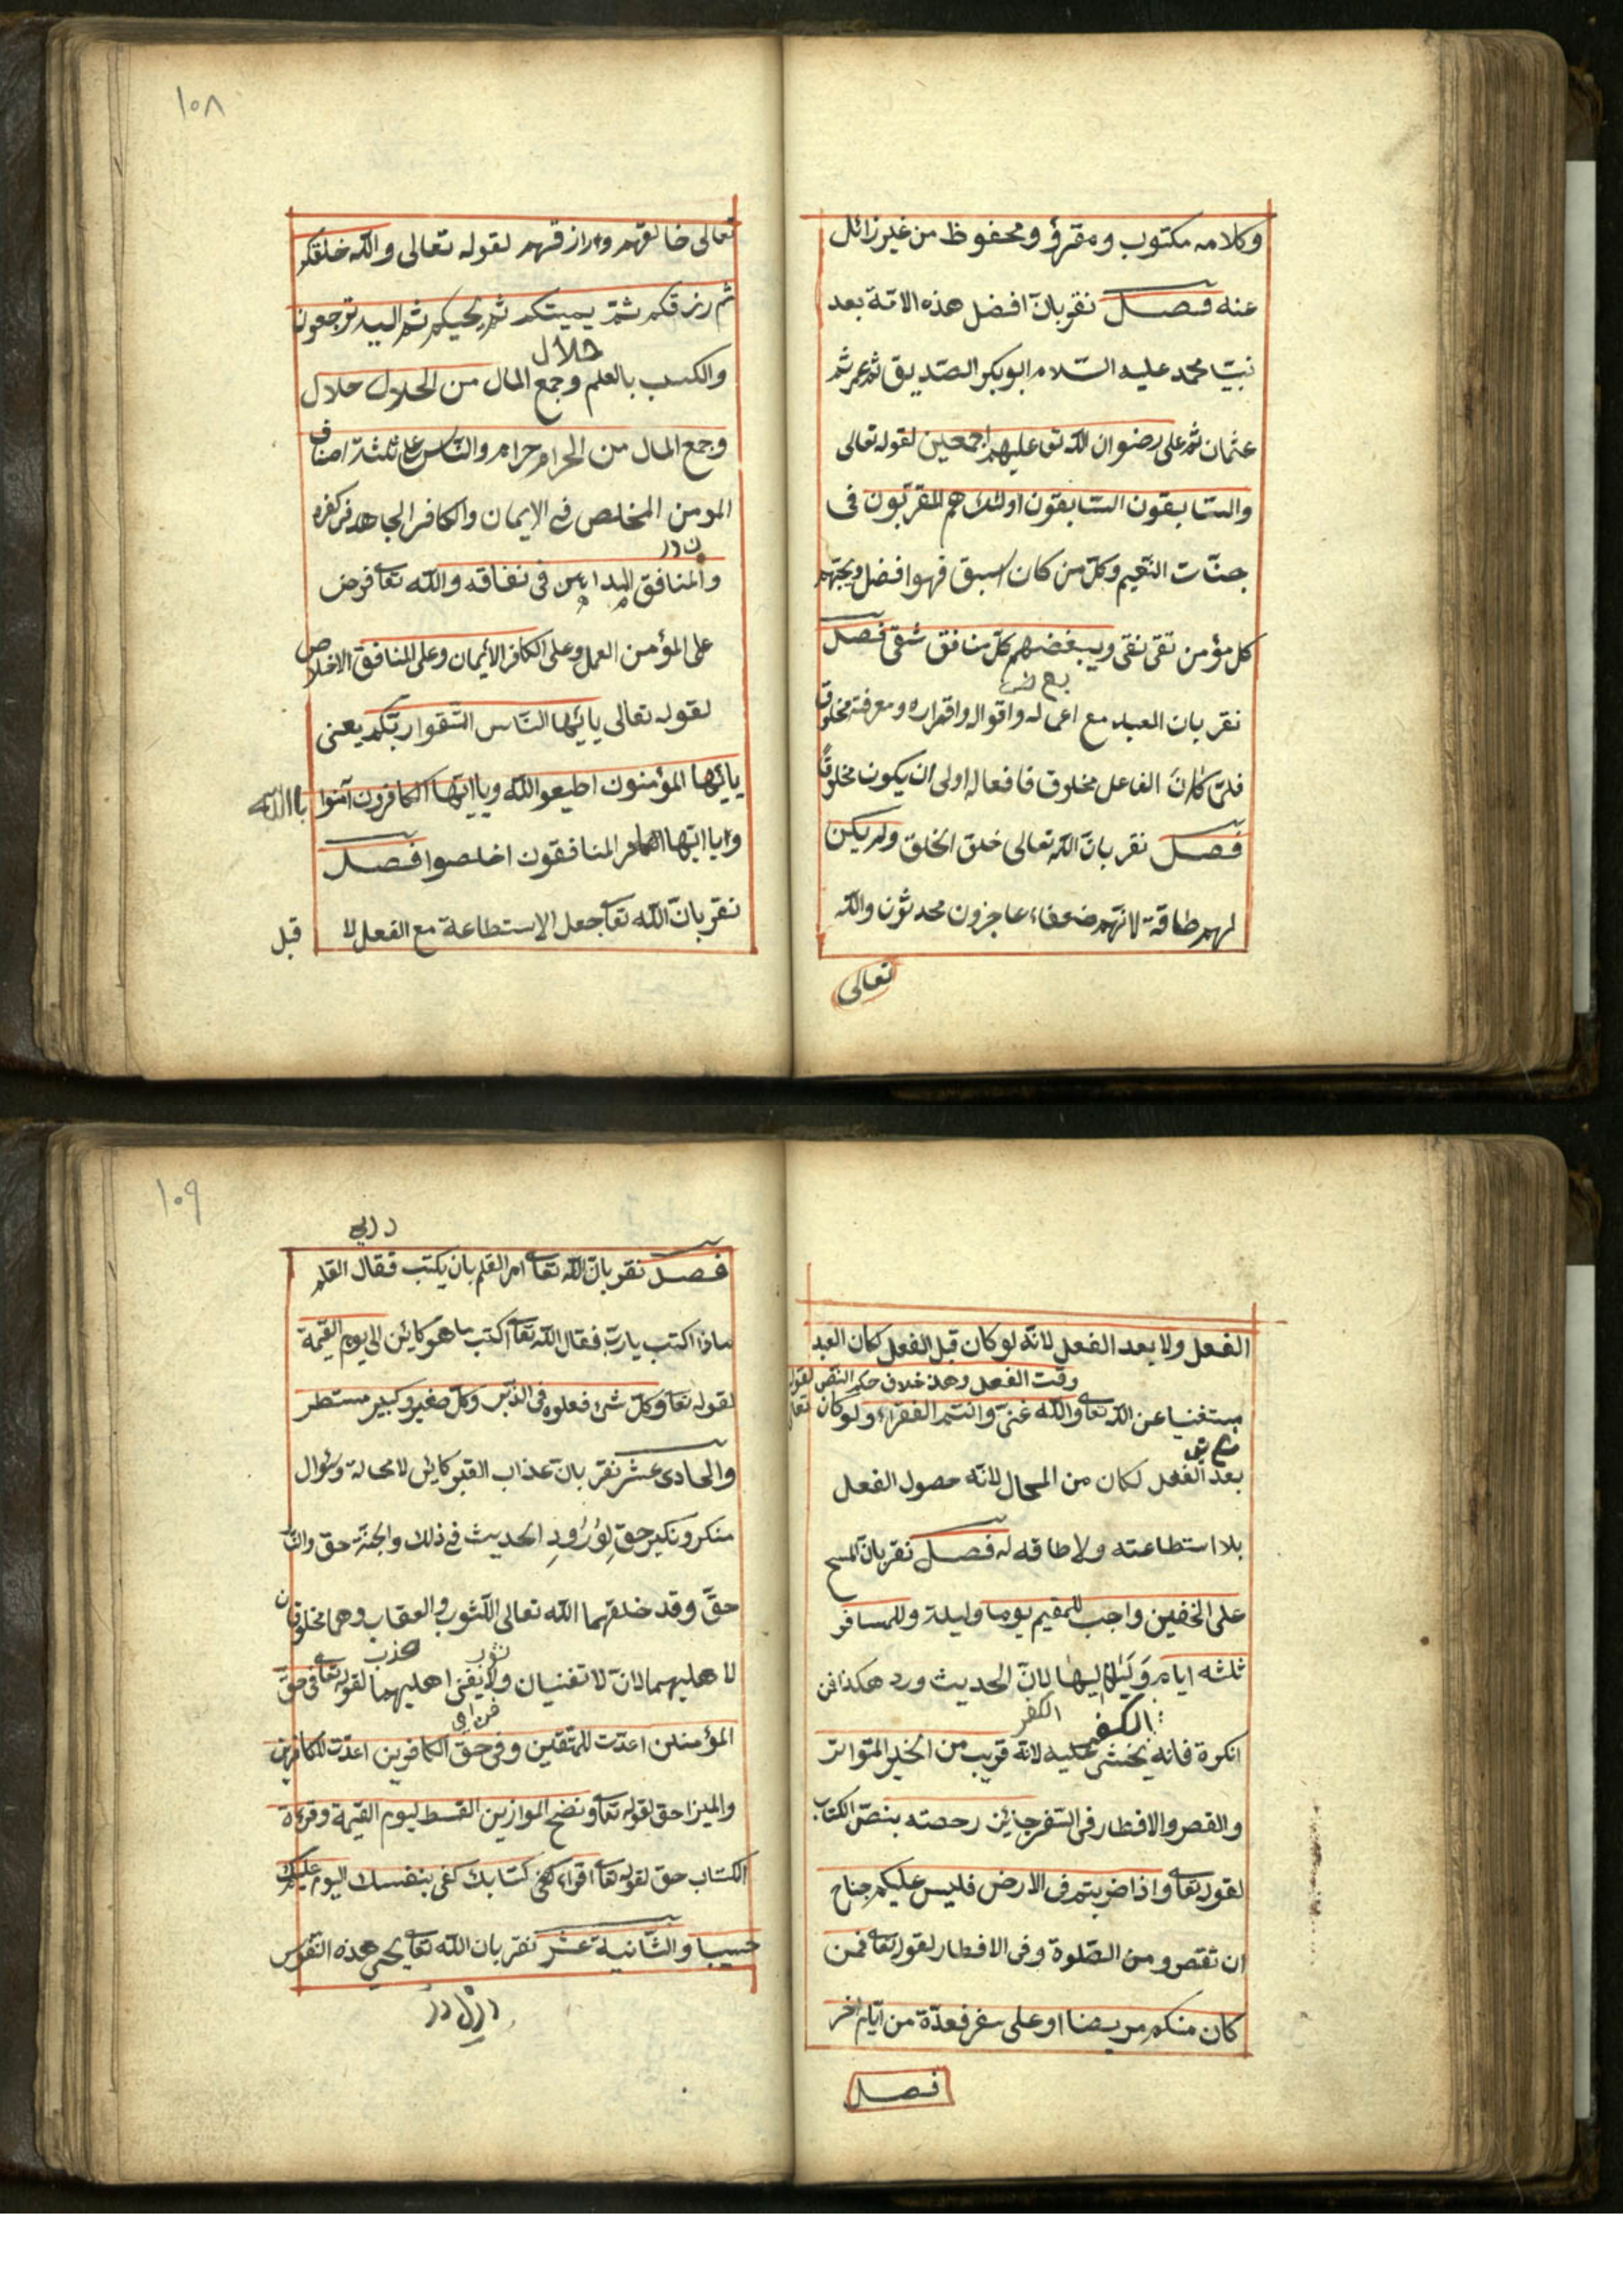 وكلامه مكتوب ومقرؤ ومحفوظ من غير زائل
عنه فصل نقر بان افضل هذه الامّة بعد
نبيّنا محمد عليه السّلام ابوبكر الصّديق ثم عمر ثم
عثمان ثم على رضوان الله تع عليهم اجمعين لقوله تعالى
والسّابقون السّابقون اولئك هم المقربّون فى
جنّات النّعيم وكلّ من كان اسبق فهو افضل ويحبّهم
كل مؤمن تقى نقى ويبغضهم كلّ منافق شقى فصل
نقر بان العبد مع اعماله واقواله واقراره ومعرفته مخلوق
فلمّا كان الفاعل مخلوق فافعاله اولى ان يكون مخلوقًا
فصل نقر بانّ الله تعالى خلق الخلق ولم يكن
لهم طاقة لانّهم ضعفاء عاجزون محدثون والله
تعالى
١٠٨
تعالى خالقهم ورازقهم لقوله تعالى والله خلقكم
ثم رزقكم ثمّ يميتكم ثم يحييكم ثم اليه ترجعون
حلال
والكسب بالعلم وجمع المال من الحلال حلال
وجمع المال من الحرام حرام والنّاس على ثلثة اصناف
المومن المخلص فى الإيمان والكافر الجاهد فى كفره
والمنافق فى نفاقه والله تعالى فرض
على المؤمن العمل وعلى الكافر الأيمان وعلى المنافق الاخلاص
لقوله تعالى يايّها النّاس اتّقوا ربّكم يعنى
يايّها المؤمنون اطيعو الله ويا ايّها الكافرون آمنوا باالله
ويا ايّها المنافقون اخلصوا فصل
نقر بانّ الله تعالى جعل الاستطاعة مع الفعل لا قبل
الفعل ولا بعد الفعل لانّه لو كان قبل الفعل لكان العبد
وقت الفعل وهذ خلاف حكم النّص لقوله تعالى
مستغنيا عن الله تعالى والله غنىّ وانتم الفقراء ولو كان
بعد الفعل لكان من المحال لانّه حصول الفعل
بلا استطاعته ولا طاقه له فصل نقر بانّ المسح
على الخفين واجب للمقيم يوما وليلة وللمسافر
ثلثه ايام وَلَياليها لانّ الحديث ورد هكذا فمن
الكفر
الكفر
انكره فانه يخشى عليه لانّه قريب من الخبر المتواتر
والقصر والافطار فى السّفر جائز رحصته بنصّ الكتاب
لقوله تعالى واذا ضربتم فى الارض فليس عليكم جناح
ان تقصرو من الصّلوة وفى الافطار لقوله تعالى فمن
كان منكم مريضا او على سفر فعدّة من ايّام اخر
فصل
١٠٩
فصل نقر بانّ الله تعالى امر القلم بان يكتب فقال القلم
ماذا اكتب يا ربّ فقال الله تعالى اكتب ما هو كائن الى يوم القيمة
لقوله تعالى وكلّ شئ فعلوه فى الزّبر وكلّ صغير وكبير مستطر
والحادى عشر نقر بانّ عذاب القبر كائن لا محالة وسؤال
منكر ونكير حقّ لِوُرُودِ الحديث فى ذلك والجنّة حق والنّار
حقّ وقد خلقهما الله تعالى للثّوب والعقاب وهما مخلوقتان
لا هليهما لانّ لا تفنيان ولا يفنى اهليهما لقوله تعالى فى حقّ
المؤمنين اعدّت للمتّقين وفى حقّ الكافرين اعدّت للكافرين
والميزان حق لقوله تعالى ونضع الموازين القسط ليوم القيمة وقرءة
الكتاب حق لقوله تعالى اقراء كتابك كفى بنفسك اليوم عليك
حسيبا والثّانية عشر نقر بان الله تعالى يحيى هذه النّفوس